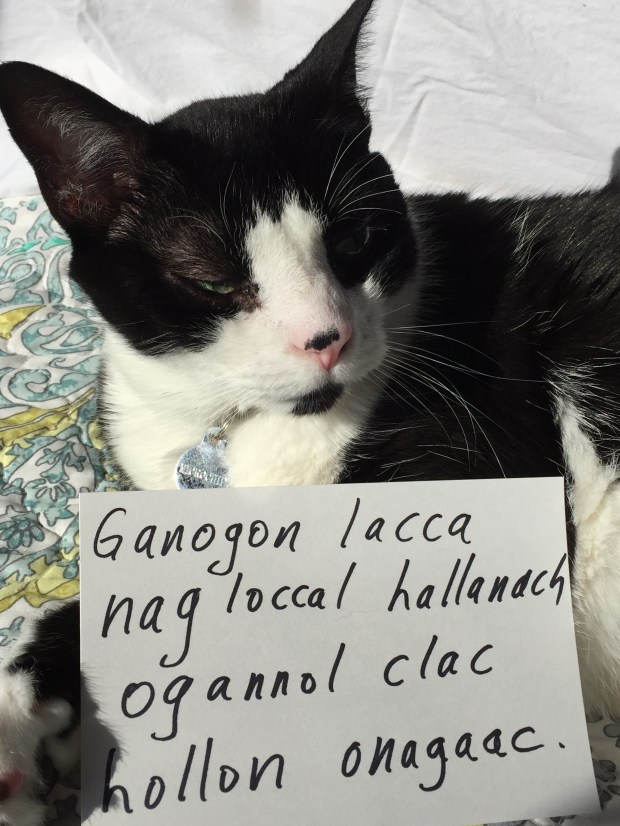 Ganogon lacca
nag loccal hallanach
ogannol clac
hollon onagaac.